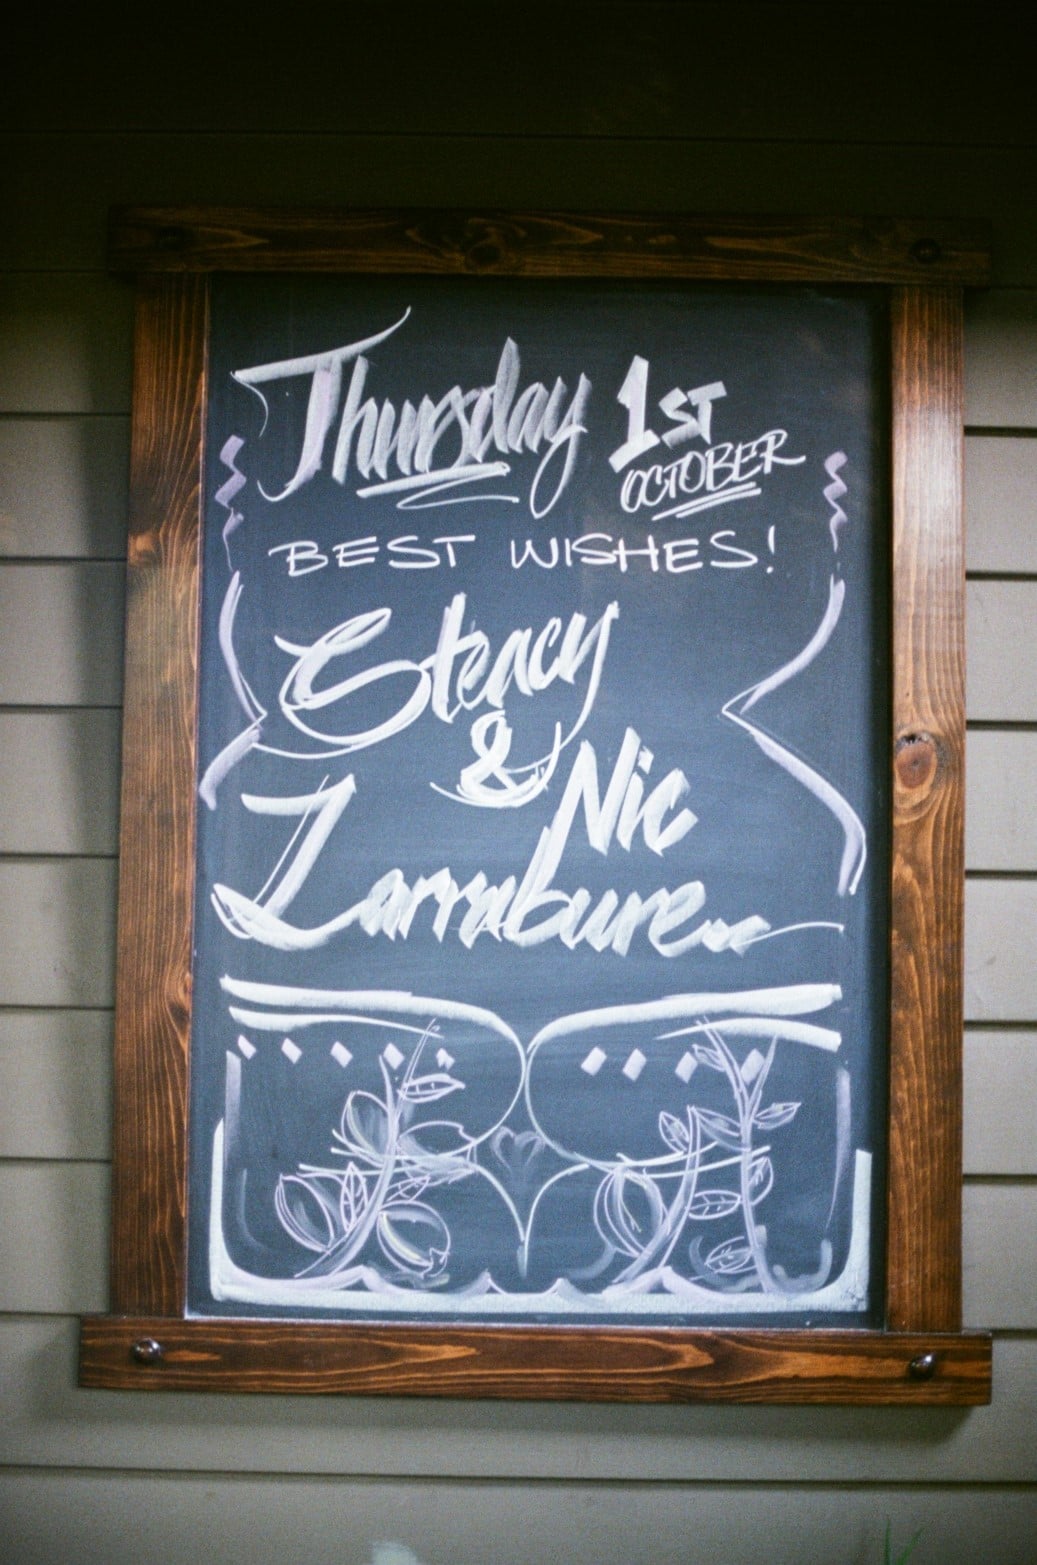 Thursday 1ST
OCTOBER
BEST WISHES!
Steacy
& Nic
Larrabure